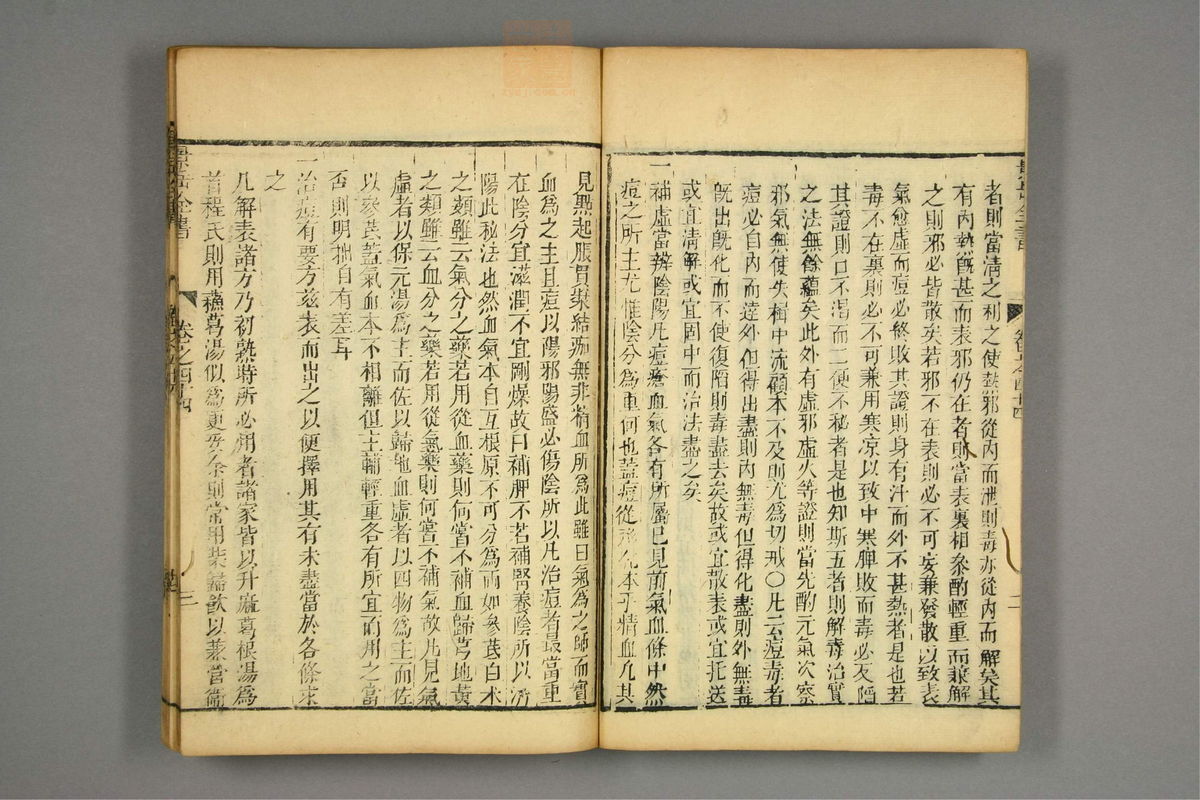 者則當清之利之使熱邪從內而泄則毒亦從內而解矣其
有內熱既甚而表邪仍在者則當表裏相參酌輕重而兼解
之則邪必皆散矣若邪不在表則必不可妄兼發散以致表
氣愈虛而痘必終敗其證則身有汗而外不甚熱者是也若
毒不在裏則必不可兼用寒凉以致中寒脾敗而毒必反陷
其證則口不渴而二便不秘者是也知斯五者則解毒治實
之法無餘蘊矣此外有虛邪虛火等證則當先酌元氣次察
邪氣無使失楫中流顧本不及則尤為切戒〇凡云痘毒者
痘必自內而達外但得出盡則內無毒但得化盡則外無毒
既出既化而不使復陷則毒盡去矣故或宜散表或宜托送
或宜清解或宜固中而治法盡之矣
一補虛當辨陰陽凡痘瘡血氣各有所屬已見前氣血條中然
痘之所主尤惟陰分為重何也蓋痘從形化本乎精血凡其
見點起脹貫漿結痂無非精血所為此雖曰氣為之帥而實
血為之主且痘以陽邪陽盛必傷陰所以凡治痘者最當重
在陰分宜滋潤不宜剛燥故曰補脾不若補腎養陰所以濟
陽此秘法也然血氣本自互根原不可分為兩如參芪白朮
之類雖云氣分之藥若用從血藥則何嘗不補血歸芎地黃
之類雖云血分之藥若用從氣藥則何嘗不補氣故凡見氣
虛者以保元湯為主而佐以歸地血虛者以四物為主而佐
以參芪蓋氣血本不相離但主輔輕重各有所宜而用之當
否則明拙自有差耳
一治痘有要方兹表而出之以便擇用其有未盡當於各條求
之
凡解表諸方乃初熱時所必用者諸家皆以升麻葛根湯為
首程氏則用蘇葛湯似為更妥余則常用柴歸飲以兼營衛
景岳全書
卷之四十四
三